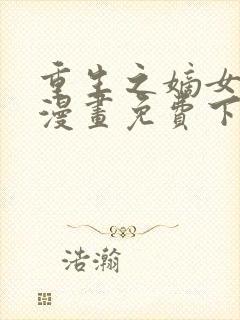 重生之嫡女
漫畫免費下
浩瀚